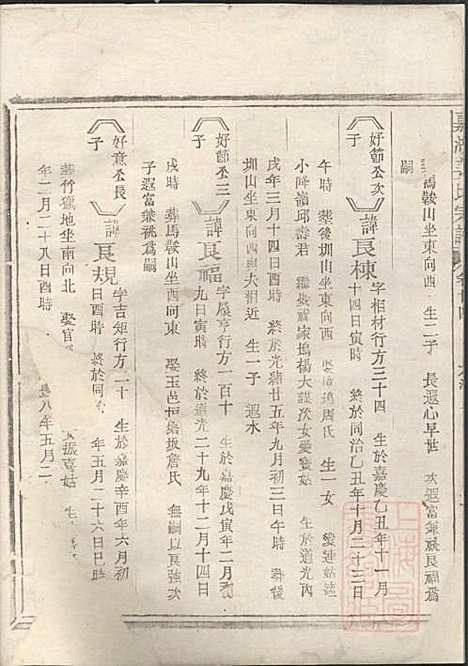 馬鞍山坐東向西 生二子 長遐心早世 次遐富兼祧良福爲
嗣
好節公次
子
諱良棟
字相材行方三十四 生於嘉慶乙丑年十一月
十四日寅時 終於同治乙丑年十月二十三日
午時 葬後圳山坐東向西 周氏 生一女 愛進姑適
小 嶺邱壽君 繼 家塢楊大謨公女愛 姑 生於道光丙
戌年三月十四日酉時 終於光緒廿五年九月初三日午時 葬後
圳山坐東向西與夫相近 生一子 遐水
好節公三
子
諱良福
字履亨行方一百十 生於嘉慶戊寅年二月初
九日寅時 終於道光二十九年十二月十四日
戌時 葬馬鞍山坐西向東 娶玉邑 詹氏 無嗣以良 次
子遐富兼祧爲嗣
好意公長
子
諱良規
字吉矩行方二十 生於嘉慶辛酉年六月初
日酉時 終於同 年五月二十六日巳時
葬竹 地坐南向北 娶官 振喜姑 生
年二月二十八日酉時 豐八年五月二